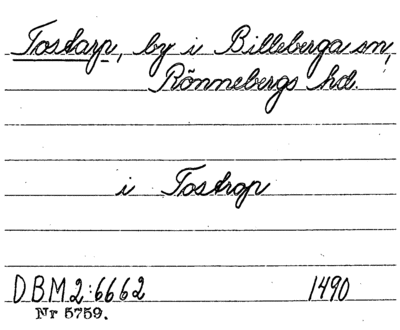 Tostarp, by i Billeberga sn,
Rönnebergs hd.
i Tostrop
DBM2:6662 1490
Nr 5759.